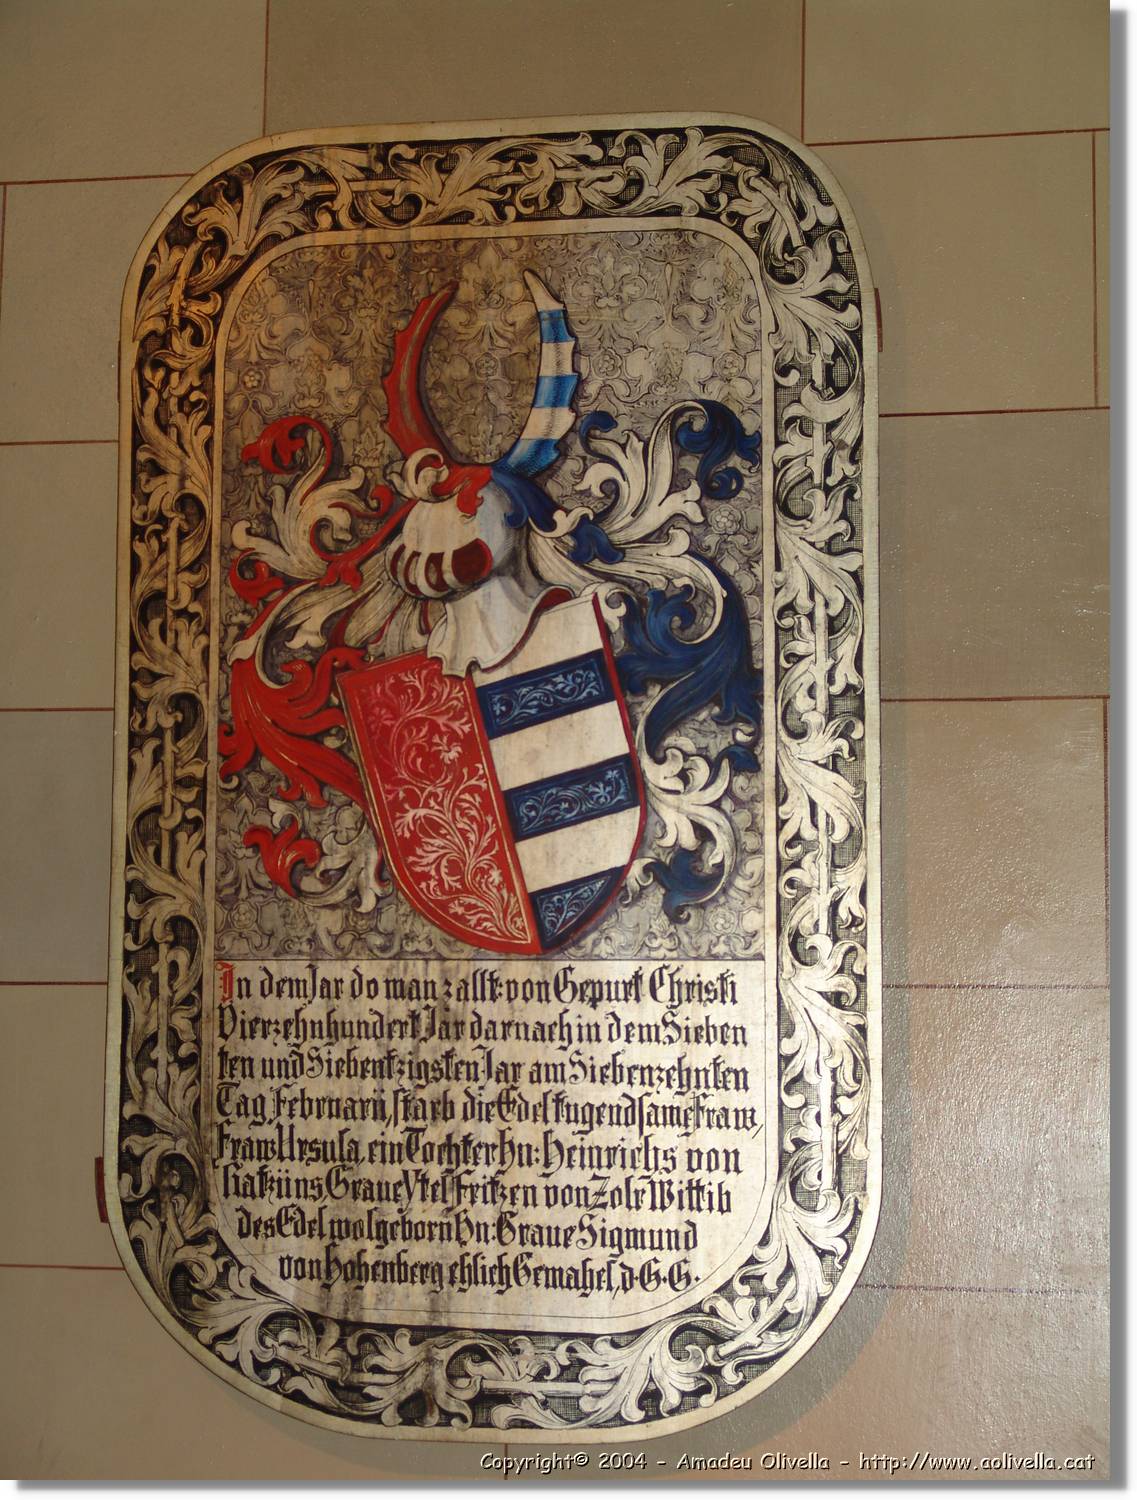 In dem Jar do man zallt: von Gepurt Christi
Vierzehnhundert Jar darnach in dem Sieben
ten und Siebentzigsten Jar am Siebenzehnten
Tag Februarii, starb die Edel tugendsame Fraw,
Fraw Ursula, ein Tochter hn: Heinrichs von
Hatzüns, Graue Ytel Fritzen von Zolr Wittib
des Edel wolgeborn Hn: Graue Sigmund
von Hohenberg ehlich Gemahel, d. G. G.
Copyright© 2004 - Amadeu Olivella - http://www.aolivella.cat